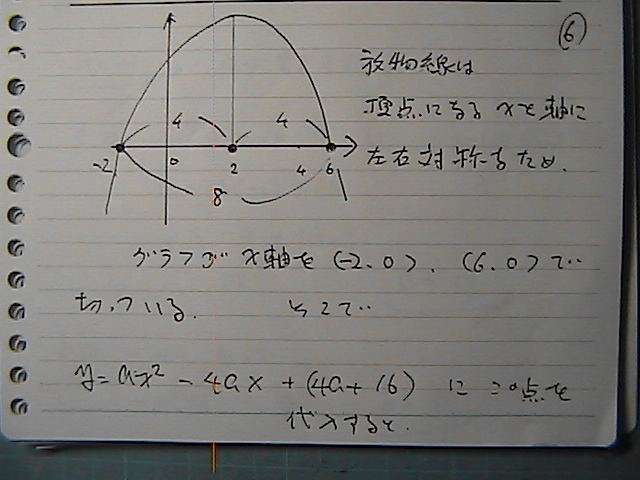 ⑥
放物線は
頂点になる xを軸に
左右対称なため.
4 4
-2 0 2 4 6
8
グラフが x軸を (-2.0). (6.0)で‥
切っている. そこで‥
y=ax² - 4ax + (4a+16) に この点を
代入すると.